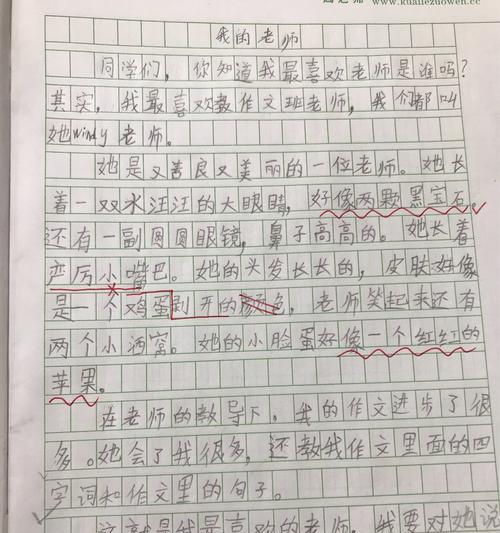 www.kuailezuowen.cc
我的老师
同学们，你知道我最喜欢老师是谁吗？
其实，我最喜欢教作文班老师，我们都叫
她windy老师。
她是又善良又美丽的一位老师。她长
着一双水汪汪的大眼睛，好像两颗黑宝石。
还有一副圆圆眼镜，鼻子高高的。她长着
小嘴巴。她的头发长长的，皮肤好像
是一个鸡蛋剥开的颜色，老师笑起来还有
两个小酒窝。她的小脸蛋好像一个红红的
苹果。
在老师的教导下，我的作文进步了很
多。她会了我很多，还教我作文里面的四
字词和作文里的句子。
这就是我是喜欢的老师，我要对她说